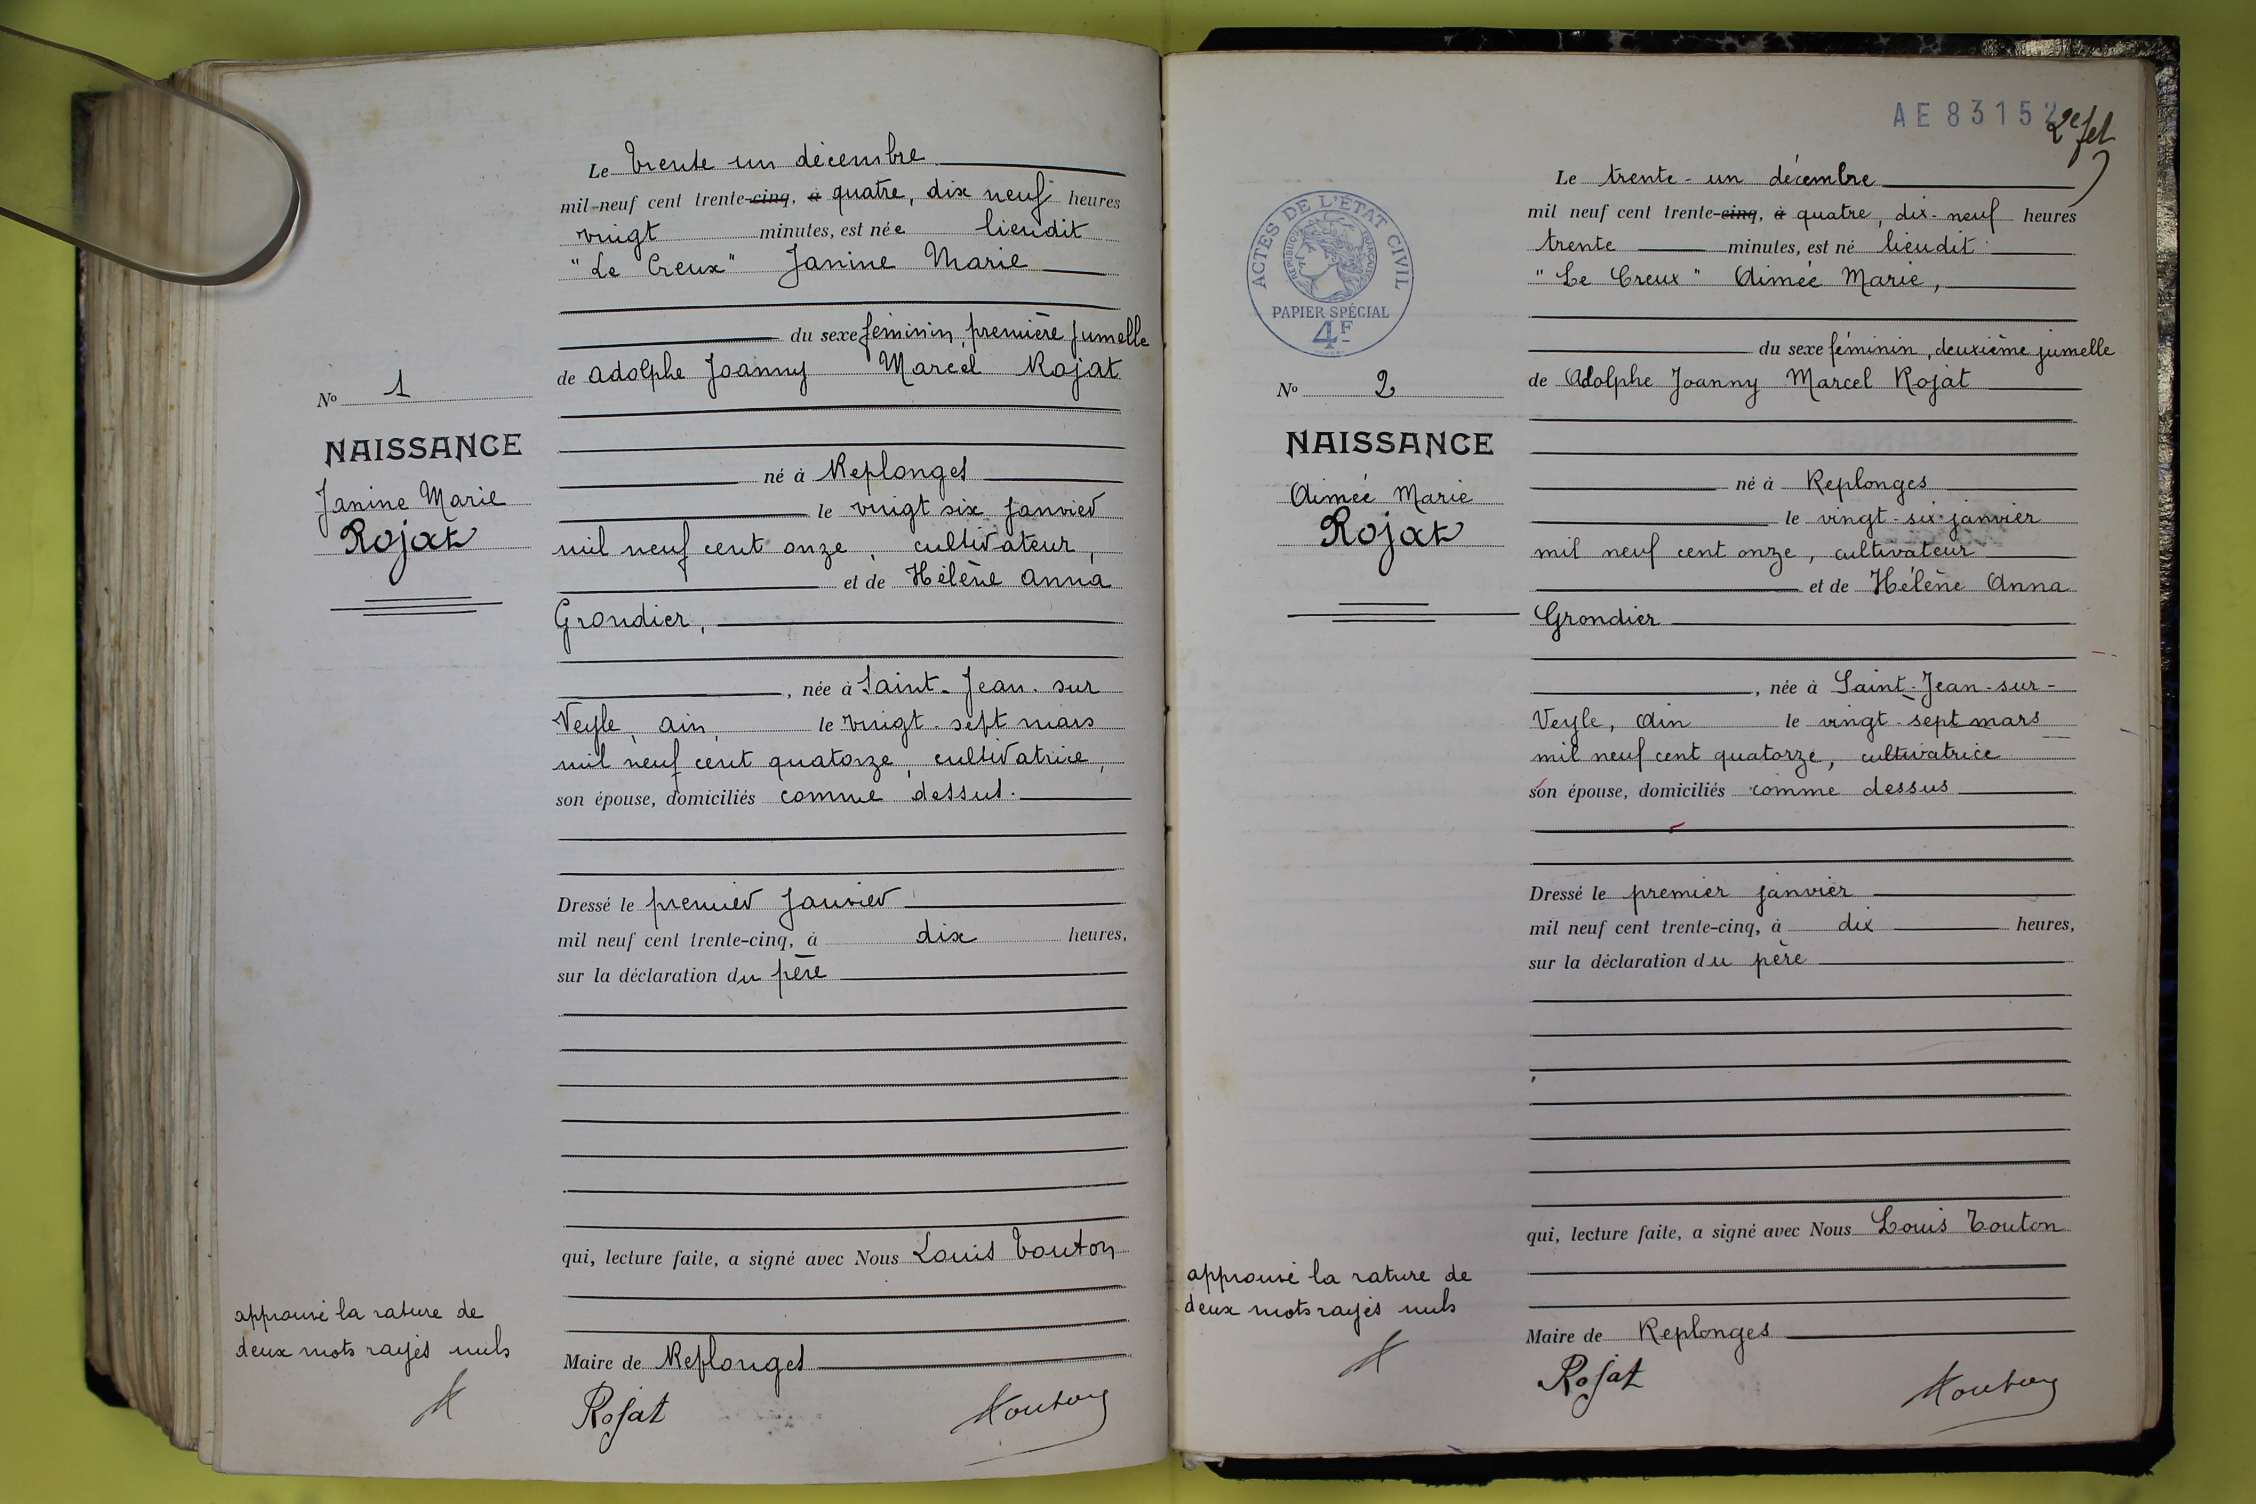 Le trente un décembre
mil neuf cent trente-cinq, à quatre, dix neuf heures
vingt minutes, est née lieudit
"Le Creux" Janine Marie
du sexe féminin, première jumelle
de Adolphe Joanny Marcel Rojat
né à Replonges
le vingt six janvier
mil neuf cent onze, cultivateur,
et de Hélène Anna
Grondier,
, née à Saint-Jean-sur
Veyle, Ain, le vingt-sept mars
mil neuf cent quatorze, cultivatrice,
son épouse, domiciliés comme dessus.
Dressé le premier janvier
mil neuf cent trente-cinq, à dix heures,
sur la déclaration du père
qui, lecture faite, a signé avec Nous Louis Touton
Maire de Replonges
Rojat Touton
No 1
NAISSANCE
Janine Marie
Rojat
approuvé la rature de
deux mots rayés nuls
AE 83152
2e fel
Le trente-un décembre
mil neuf cent trente-cinq, à quatre, dix-neuf heures
trente minutes, est né lieudit
"Le Creux" Aimée Marie,
du sexe féminin, deuxième jumelle
de Adolphe Joanny Marcel Rojat
né à Replonges
le vingt-six janvier
mil neuf cent onze, cultivateur
et de Hélène Anna
Grondier
, née à Saint-Jean-sur-
Veyle, Ain le vingt-sept mars
mil neuf cent quatorze, cultivatrice
son épouse, domiciliés comme dessus
Dressé le premier janvier
mil neuf cent trente-cinq, à dix heures,
sur la déclaration du père
qui, lecture faite, a signé avec Nous Louis Touton
Maire de Replonges
Rojat Touton
ACTES DE L'ÉTAT CIVIL
RÉPUBLIQUE FRANÇAISE
PAPIER SPÉCIAL
4F
No 2
NAISSANCE
Aimée Marie
Rojat
approuvé la rature de
deux mots rayés nuls